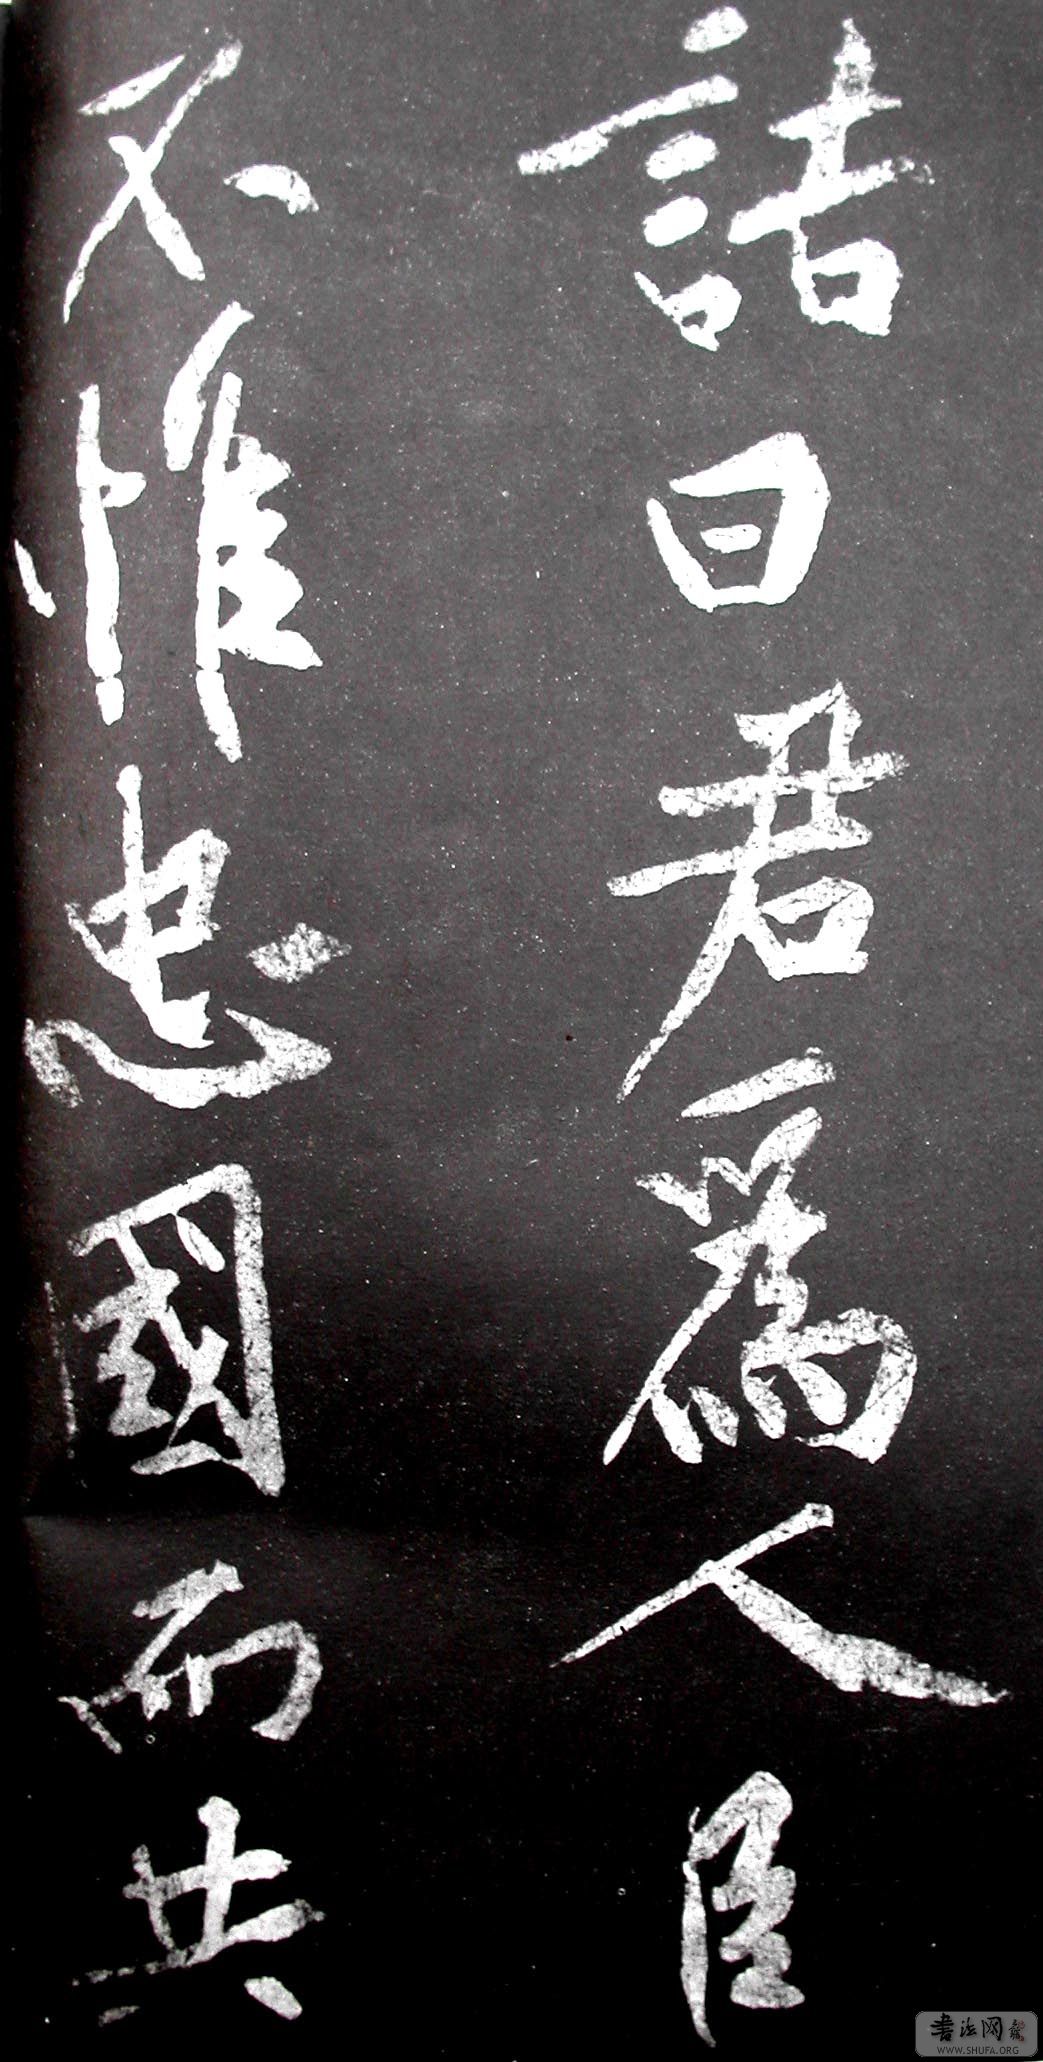 詰曰君爲人臣
不惟忠國而共
書法网
WWW.SHUFA.ORG